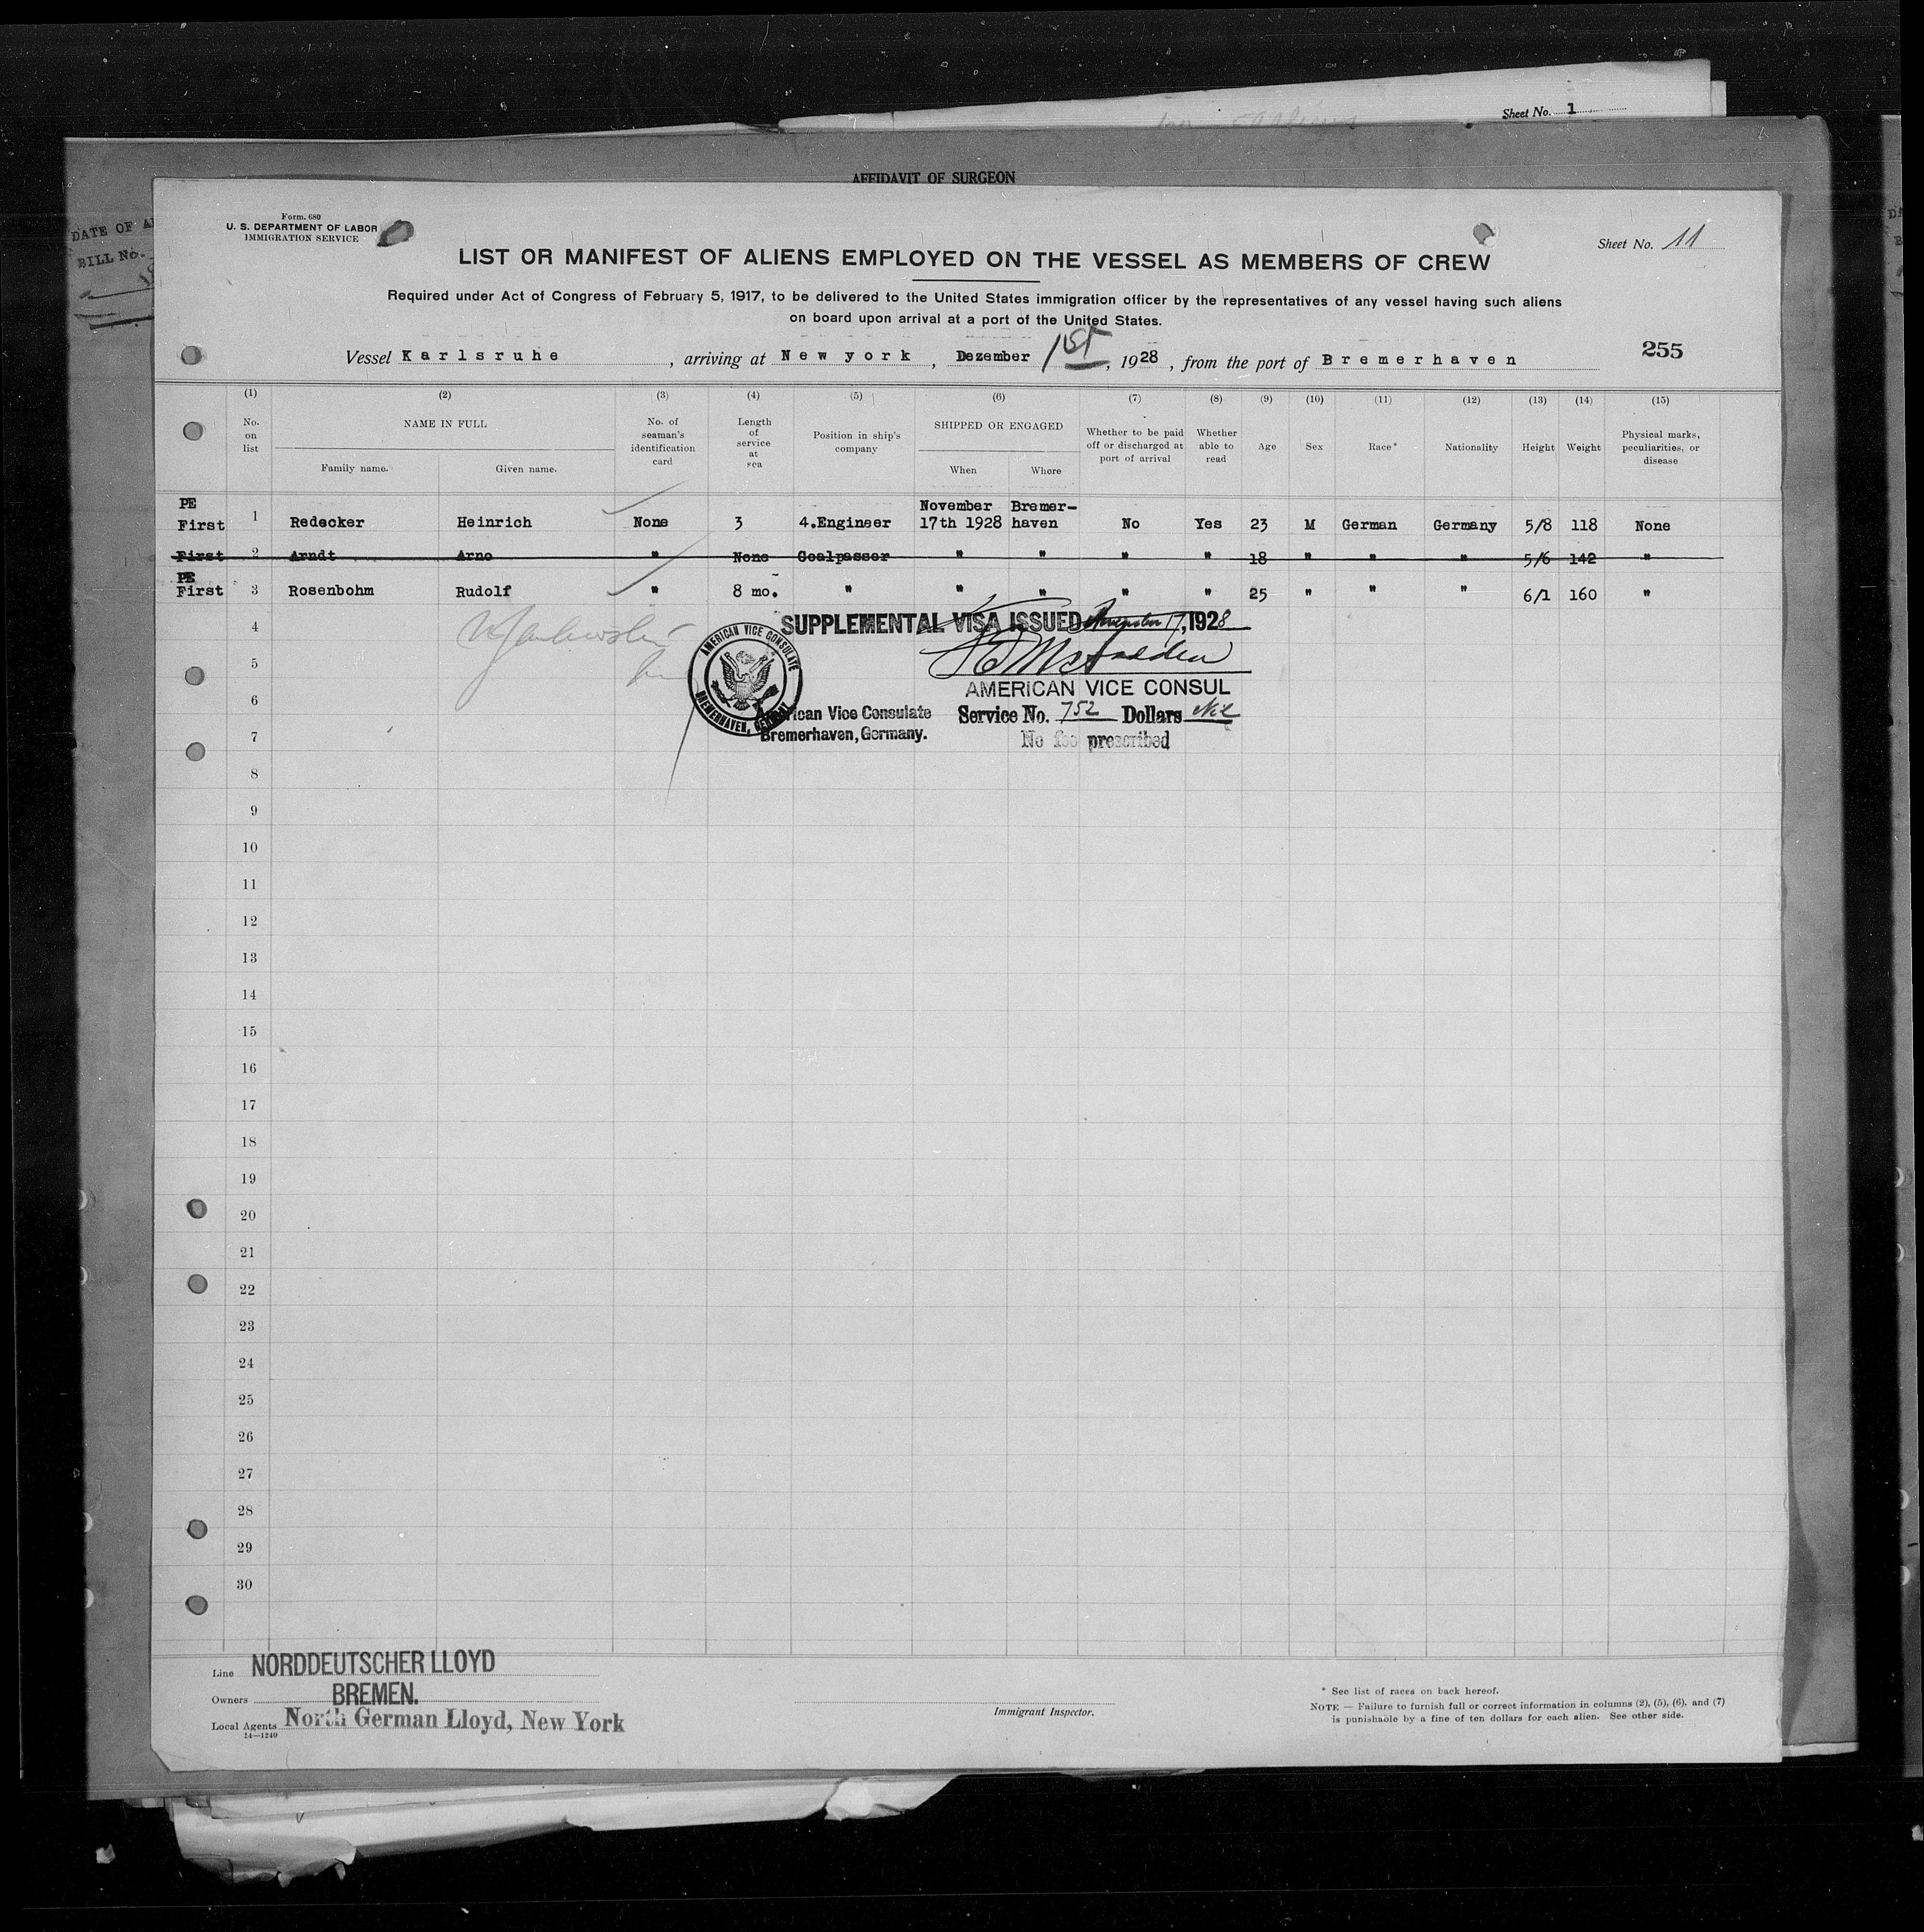 Sheet No. 1
AFFIDAVIT OF SURGEON
DATE OF
BILL No.
Form. 680
U. S. DEPARTMENT OF LABOR
IMMIGRATION SERVICE
Sheet No. 11
LIST OR MANIFEST OF ALIENS EMPLOYED ON THE VESSEL AS MEMBERS OF CREW
Required under Act of Congress of February 5, 1917, to be delivered to the United States immigration officer by the representatives of any vessel having such aliens
on board upon arrival at a port of the United States.
Vessel Karlsruhe, arriving at New york, Dezember 1st, 1928, from the port of Bremerhaven
255
(1) (2) (3) (4) (5) (6) (7) (8) (9) (10) (11) (12) (13) (14) (15)
No. on list
NAME IN FULL
Family name. Given name.
No. of seaman's identification card
Length of service at sea
Position in ship's company
SHIPPED OR ENGAGED
When Where
Whether to be paid off or discharged at port of arrival
Whether able to read
Age
Sex
Race*
Nationality
Height
Weight
Physical marks, peculiarities, or disease
PE
First 1 Redecker Heinrich None 3 4.Engineer November 17th 1928 Bremer-haven No Yes 23 M German Germany 5/8 118 None
First 2 Arndt Arno " None Coalpasser " " " " 18 " " " 5/6 142 "
PE
First 3 Rosenbohm Rudolf " 8 mo. " " " " " 25 " " " 6/1 160 "
4
SUPPLEMENTAL VISA ISSUED November 17, 1928
5
AMERICAN VICE CONSULATE
BREMERHAVEN, GERMANY
AMERICAN VICE CONSUL
6
American Vice Consulate
Bremerhaven, Germany.
Service No. 752 Dollars Nil
No fee prescribed
7
8
9
10
11
12
13
14
15
16
17
18
19
20
21
22
23
24
25
26
27
28
29
30
Line NORDDEUTSCHER LLOYD
Owners BREMEN.
Local Agents North German Lloyd, New York
14—1240
Immigrant Inspector.
* See list of races on back hereof.
NOTE — Failure to furnish full or correct information in columns (2), (5), (6), and (7)
is punishable by a fine of ten dollars for each alien. See other side.